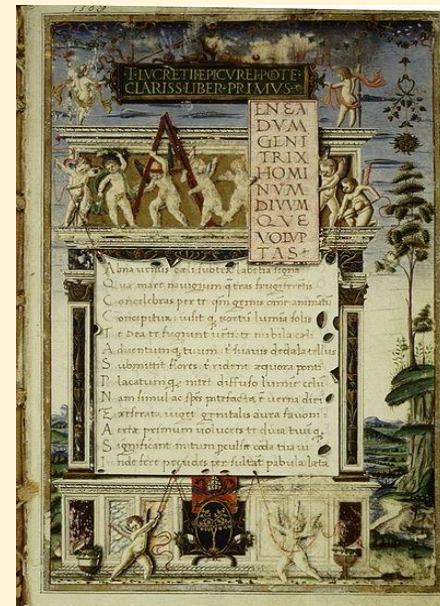 ·T·LVCRETII·EPICVREI·POTE·
CLARISS·LIBER·PRIMVS·
ENEA
DVM
GENI
TRIX
HOMI
NVM
DIVUM
QVE
VOLVP
TAS
Alma uenus cæli subter labentia signa
Quæ mare nauigerum q̃ terras frugiferentis
Concelebras per te quoniam genus omne animantum
Concipitur uisitq; exortum lumina solis
Te Dea te fugiunt uenti te nubila cæli
Aduentumq; tuum t suauis dædala tellus
Submittit flores t rident æquora ponti
Placatumq; nitet diffuso lumine celum
Nam simul ac spes patefacta ē uerna diei
Et reserata uiget genitalis aura fauoni
Aeriæ primum uolucres te diua tuũq;
Significant initum perculsæ corda tua ui
Inde feræ pecudes persultant pabula læta